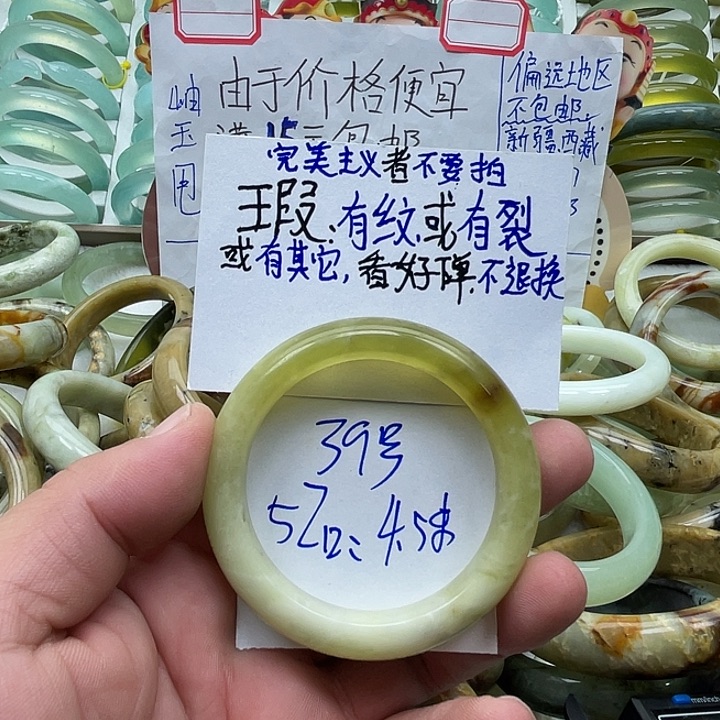 由于价格便宜
满15元包邮
岫
玉
甩
偏远地区
不包邮,
新疆.西藏
完美主义者不要拍
瑕.有纹.或有裂
或有其它,看好弹.不退换
39号
52口: 4.5